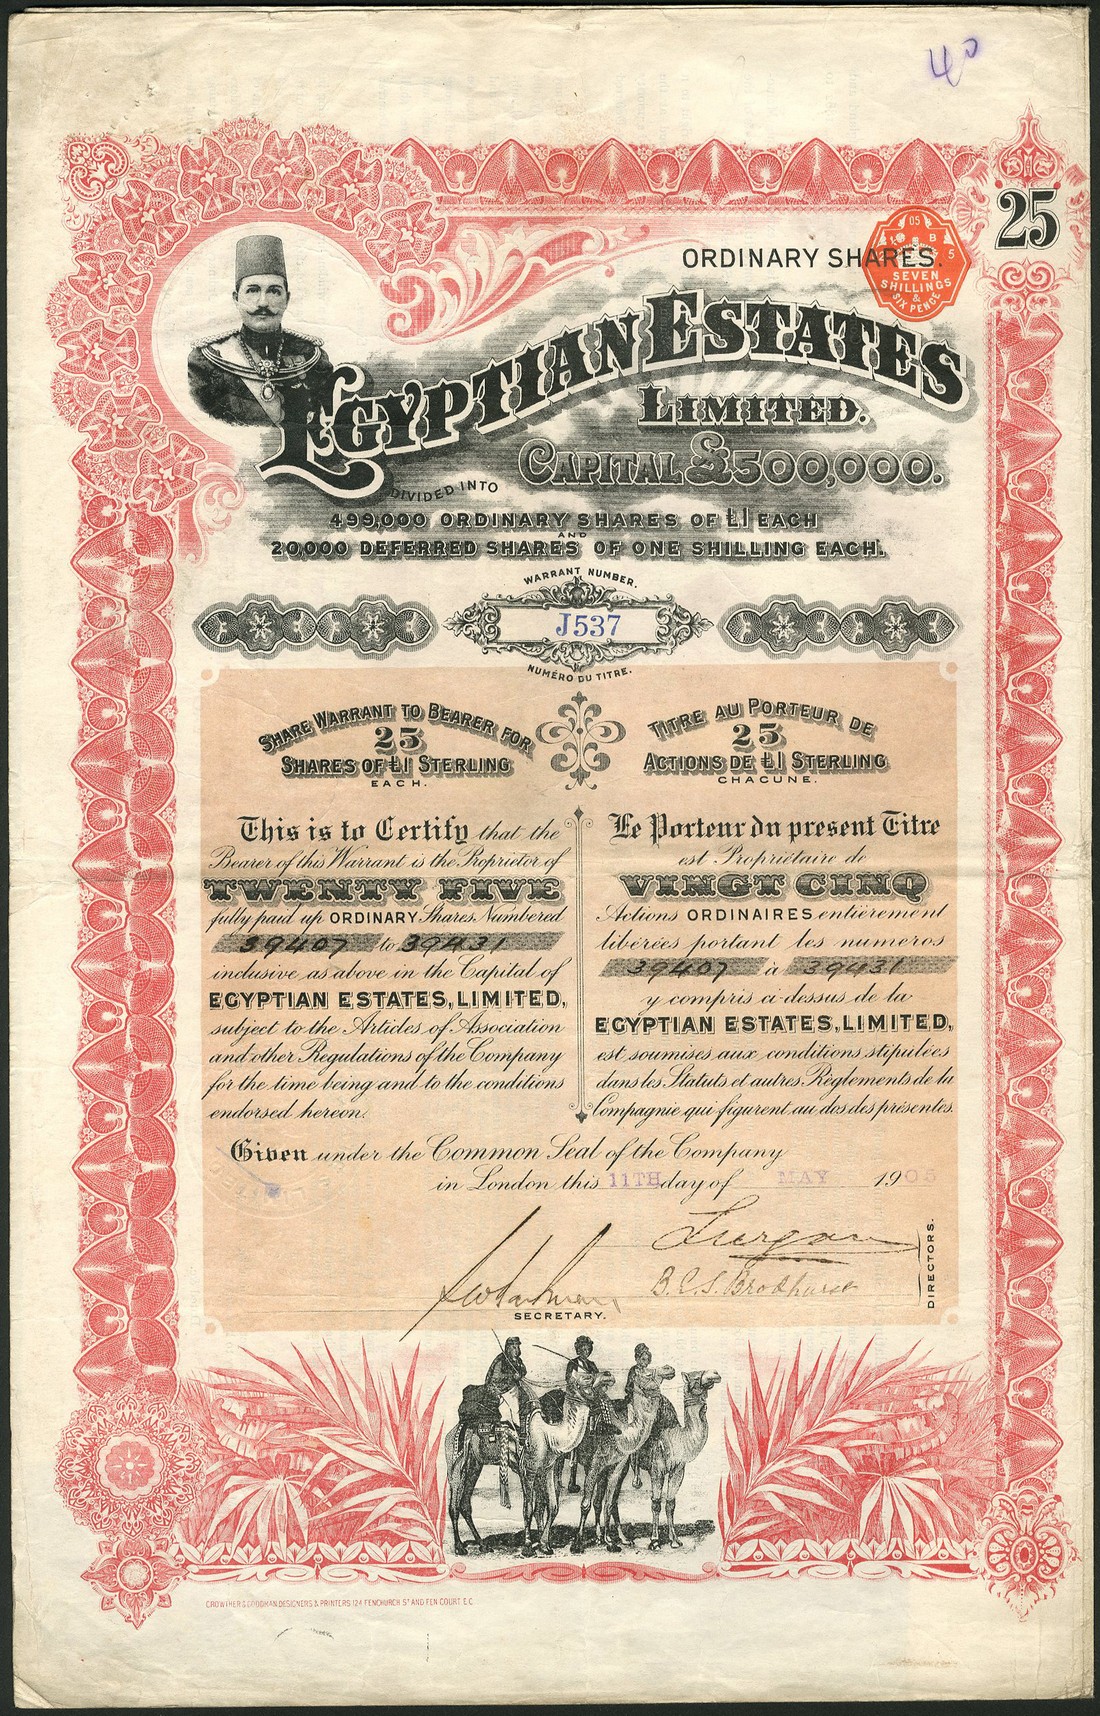 40
25
ORDINARY SHARES.
05
SEVEN
SHILLINGS
&
SIX PENCE
EGYPTIAN ESTATES
LIMITED.
CAPITAL £500,000.
DIVIDED INTO
499,000 ORDINARY SHARES OF £1 EACH
AND
20,000 DEFERRED SHARES OF ONE SHILLING EACH.
WARRANT NUMBER.
J537
NUMÉRO DU TITRE.
SHARE WARRANT TO BEARER FOR
25
SHARES OF £1 STERLING
EACH.
This is to Certify that the
Bearer of this Warrant is the Proprietor of
TWENTY FIVE
fully paid up ORDINARY Shares Numbered
39407 to 39431
inclusive as above in the Capital of
EGYPTIAN ESTATES, LIMITED,
subject to the Articles of Association
and other Regulations of the Company
for the time being and to the conditions
endorsed hereon.
TITRE AU PORTEUR DE
25
ACTIONS DE £1 STERLING
CHACUNE.
Le Porteur du present Titre
est Propriétaire de
VINGT CINQ
Actions ORDINAIRES entièrement
libérées portant les numeros
39407 à 39431
y compris ci-dessus de la
EGYPTIAN ESTATES, LIMITED,
est soumises aux conditions stipulées
dans les Statuts et autres Règlements de la
Compagnie qui figurent au dos des présentes.
Given under the Common Seal of the Company
in London this 11TH day of MAY 1905
Lurgan
B.C.S. Brodhurst
DIRECTORS.
SECRETARY.
CROWTHER & GOODMAN DESIGNERS & PRINTERS 124 FENCHURCH ST AND FEN COURT E.C.